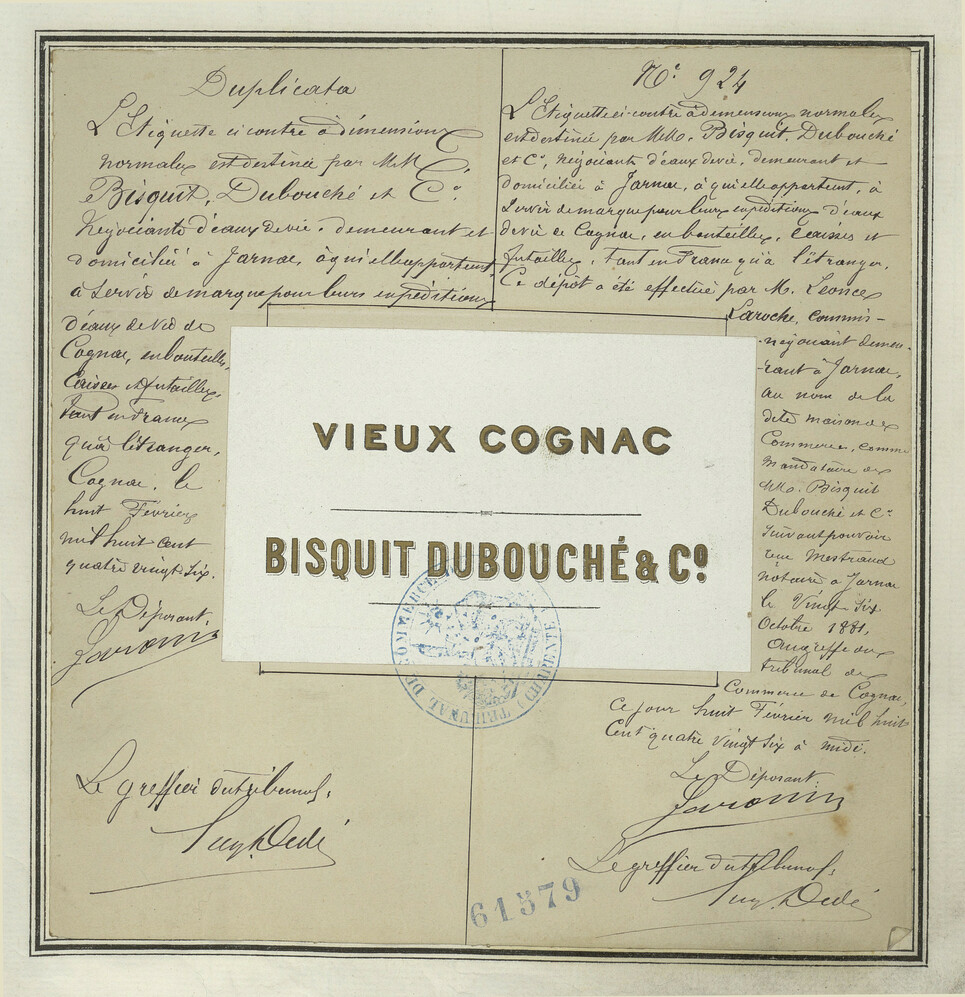 Duplicata
L'Etiquette ci contre à dimensions
normales est destinée par MM
Bisquit, Dubouché et Cº.
Négociants d'eaux de vie, demeurant et
domicilié à Jarnac, à qui elle appartient,
à servir de marque pour leurs expéditions
d'eaux de vie de
Cognac, en bouteilles,
Caisses et futailles,
tant en France
qu'à l'étranger,
Cognac, le
huit Février
mil huit cent
quatre vingt six.
Le Déposant,
Le greffier du tribunal,
Nº 924
L'Etiquette ci-contre à dimensions normales
est destinée par MM. Bisquit, Dubouché
et Cº, négociants d'eaux de vie, demeurant et
domiciliés à Jarnac, à qui elle appartient, à
servir de marque pour leurs expéditions d'eaux
de vie de Cognac, en bouteilles, Caisses et
futailles, tant en France qu'à l'étranger.
Ce dépôt a été effectué par M. Léonce
Laroche, commis-
négociant demeu-
rant à Jarnac,
au nom de la
dite maison de
Commerce, comme
Mandataire de
MM. Bisquit
Dubouché et Cº
suivant pouvoir
reçu Mestraud
notaire à Jarnac
le Vingt six
Octobre 1881,
au greffe du
tribunal de
Commerce de Cognac,
ce jour huit Février mil huit
Cent quatre vingt six à midi.
Le Déposant,
Le greffier du tribunal,
VIEUX COGNAC
BISQUIT DUBOUCHÉ & Cº.
TRIBUNAL DE COMMERCE
61579